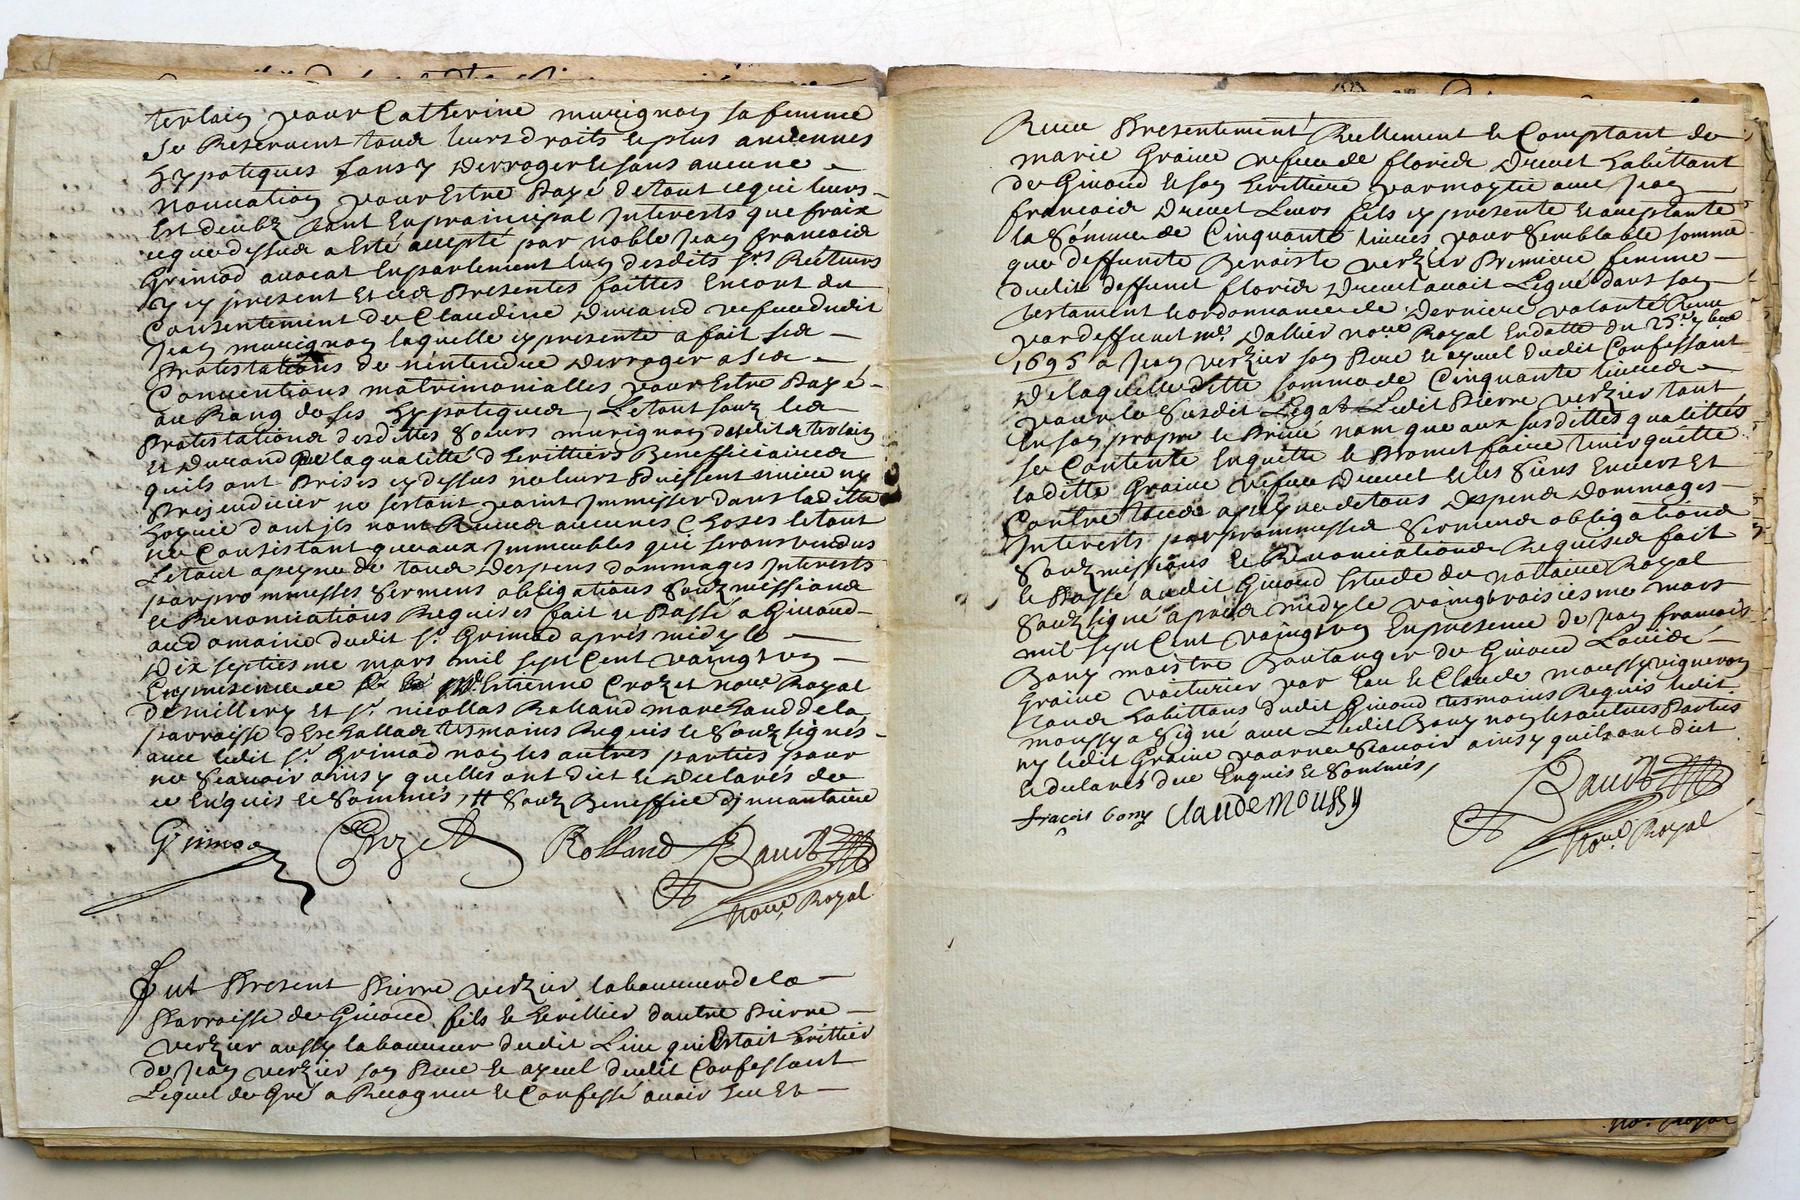 terlain pour Catherine murignon sa femme
se Reservent tous leurs droits le plus anciennes
hypotiques sans y derroger le sans aucune
nouvation pour Estre Payé de tout ce qui leurs
Est deubz tant En prainicipal Interests que fraix
ce que dessus a Esté accepté par noble Jean francois
Grimod avocat En parlement lun desdits srs Recteurs
y cy present Et ces Presentes faittes Encort du
Consentement de Claudine Durand vefve dudit
Jean murignon laquelle cy presente a fait ses
Protestations de n'entendre derroger a ses
Conventions matrimonialles pour Estre Payé
au Rang de ses hypotiques, Le tout souz les
Protestations desdittes Soeurs murignon desdits terlain
et Durand que la qualitté d'herittiers Benefficiaires
quils ont Prises cy dessus ne leurs Puissent nuire ny
Prejeudicier ne sestant point Jmmisser dans laditte
hoirie dont jls nont Receus aucunes Choses le tout
ne Consistant que aux Jmmeubles qui seront vendus
Le tout a peyne de tous despens dommages Interests
par prommesses sermens obligations Souzmissions
le Renonciations Requises fait le Passé a Givord
au domaine dudit sr. Grimod aprés midy le
Dix septiesme mars mil sept Cent vaingt un
En presence de Me Estienne Crozet nore Royal
de millery et sr. nicollas Rolland marchand de la
parroisse d'Eschallas tesmoins Requis le Souz signés
avec ledit sr. Grimod non les autres parties pour
ne Sçauoir ainsy quelles ont dict le declarés de
ce Enquis le Sommés, # Souz Beneffice dinuantaire
Grimod Crozet Rolland Baudt
nore. Royal
Fut Present Pierre verzier laboureur de la
Parroisse de Givord fils le herittier dautre Pierre
verzier aussy laboureur dudit Lieu qui Estoit herittier
de Jean verzier son Pere le ayeul dudit Confessant
Lequel de Gré a Recognu le Confessé avoir Eu Et
Receu Presentement Reellement le Comptant de
marie Graine vefve de floris Drevet habittant
de Givord le son herittiere par moytié avec Jean
francois Drevet Leurs fils cy presente le acceptante
la Somme de Cinquante livres pour Semblable somme
que deffuncte Benoiste verzier Premiere femme
dudit deffunct floris Drevet avoit Legué dans son
testament le ordonnance de Derniere volonté Receu
par deffunct me. Dallier nore Royal En datte du 25e 7bre
1695 a Jean verzier son Pere le ayeul dudit Confessant
De laquelle ditte somme de Cinquante livres
pour le Susdit Legat Ledit Pierre verzier tant
En son propre le Privé nom que aux susdittes qualittés
se Contente En quitte le Promet faire tenir quitte
laditte Graine vefve Drevet le les Siens Envers Et
Contre tous a peyne de tous despens dommages
Interests par prommesses Sermens obligations
Souzmissions le Renonciations Requises fait
le Passé audit Givord Estude du nottaire Royal
Souzsigné aprés midy le vaingt troisiesme mars
mil sept Cent vaingt un En presence de Jean francois
Bony maistre Boulanger de Givord Louis
Graine voiturier par Eau le Claude moussy vigneron
tous habittans dudit Givord tesmoins Requis ledit
moussy a Signé avec Ledit Bony non les autres Parties
ny ledit Graine pour ne Sçauoir ainsy quils ont dict
le declarés de ce Enquis le Sommés,
fracois bony Claude Moussy Baudt
nore. Royal
no. Royal